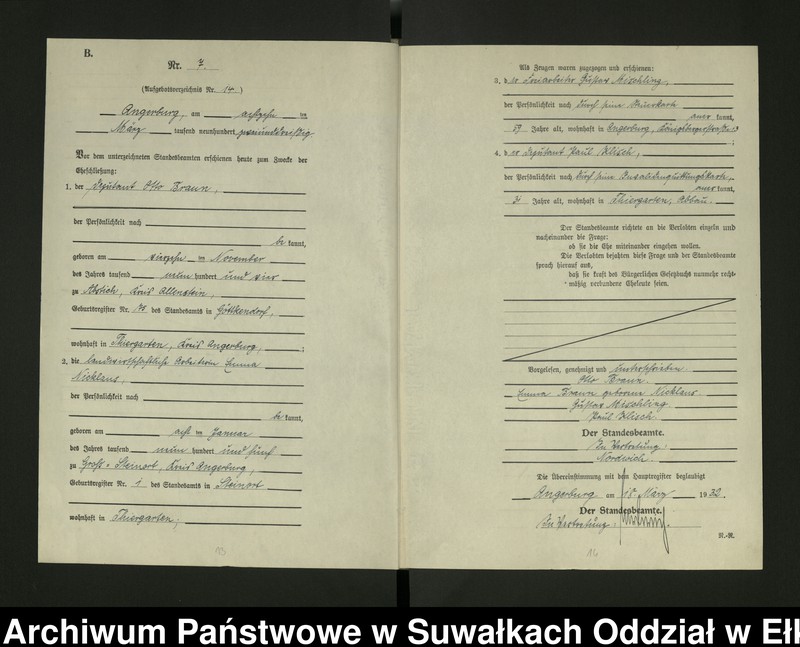 B.
Nr. 7.
(Aufgebotsverzeichnis Nr. 14)
Angerburg, am achtzehn ten
März tausend neunhundert zweiunddreißig
Vor dem unterzeichneten Standesbeamten erschienen heute zum Zwecke der
Eheschließung:
1. der Deputant Otto Braun,
der Persönlichkeit nach
be kannt,
geboren am vierzehn ten November
des Jahres tausend neun hundert und vier
zu Abstich, Kreis Allenstein,
Geburtsregister Nr. des Standesamts in Göttkendorf,
wohnhaft in Thiergarten, Kreis Angerburg, ;
2. die landwirtschaftliche Arbeiterin Emma
Nicklaus,
der Persönlichkeit nach
be kannt,
geboren am acht ten Januar
des Jahres tausend neun hundert und fünf
zu Groß-Steinort, Kreis Angerburg,
Geburtsregister Nr. 1 des Standesamts in Steinort
wohnhaft in Thiergarten;
13
Als Zeugen waren zugezogen und erschienen:
3. d er Gustav Mischling,
der Persönlichkeit nach durch seine
aner kannt,
59 Jahre alt, wohnhaft in Angerburg,
;
4. d er Deputant Paul Klisch,
der Persönlichkeit nach durch seine Invalidenquittungskarte,
aner kannt,
Jahre alt, wohnhaft in Thiergarten, Abbau.
Der Standesbeamte richtete an die Verlobten einzeln und
nacheinander die Frage:
ob sie die Ehe miteinander eingehen wollen.
Die Verlobten bejahten diese Frage und der Standesbeamte
sprach hierauf aus,
daß sie kraft des Bürgerlichen Gesetzbuchs nunmehr recht-
mäßig verbundene Eheleute seien.
Vorgelesen, genehmigt und unterschrieben
Otto Braun.
Emma Braun geborene Nicklaus
Gustav Mischling
Paul Klisch.
Der Standesbeamte.
In Vertretung:
Nordwich.
Die Übereinstimmung mit dem Hauptregister beglaubigt
Angerburg am 18. März 1932.
Der Standesbeamte.
In Vertretung:
N.-R.
14
Archiwum Państwowe w Suwałkach Oddział w Ełk